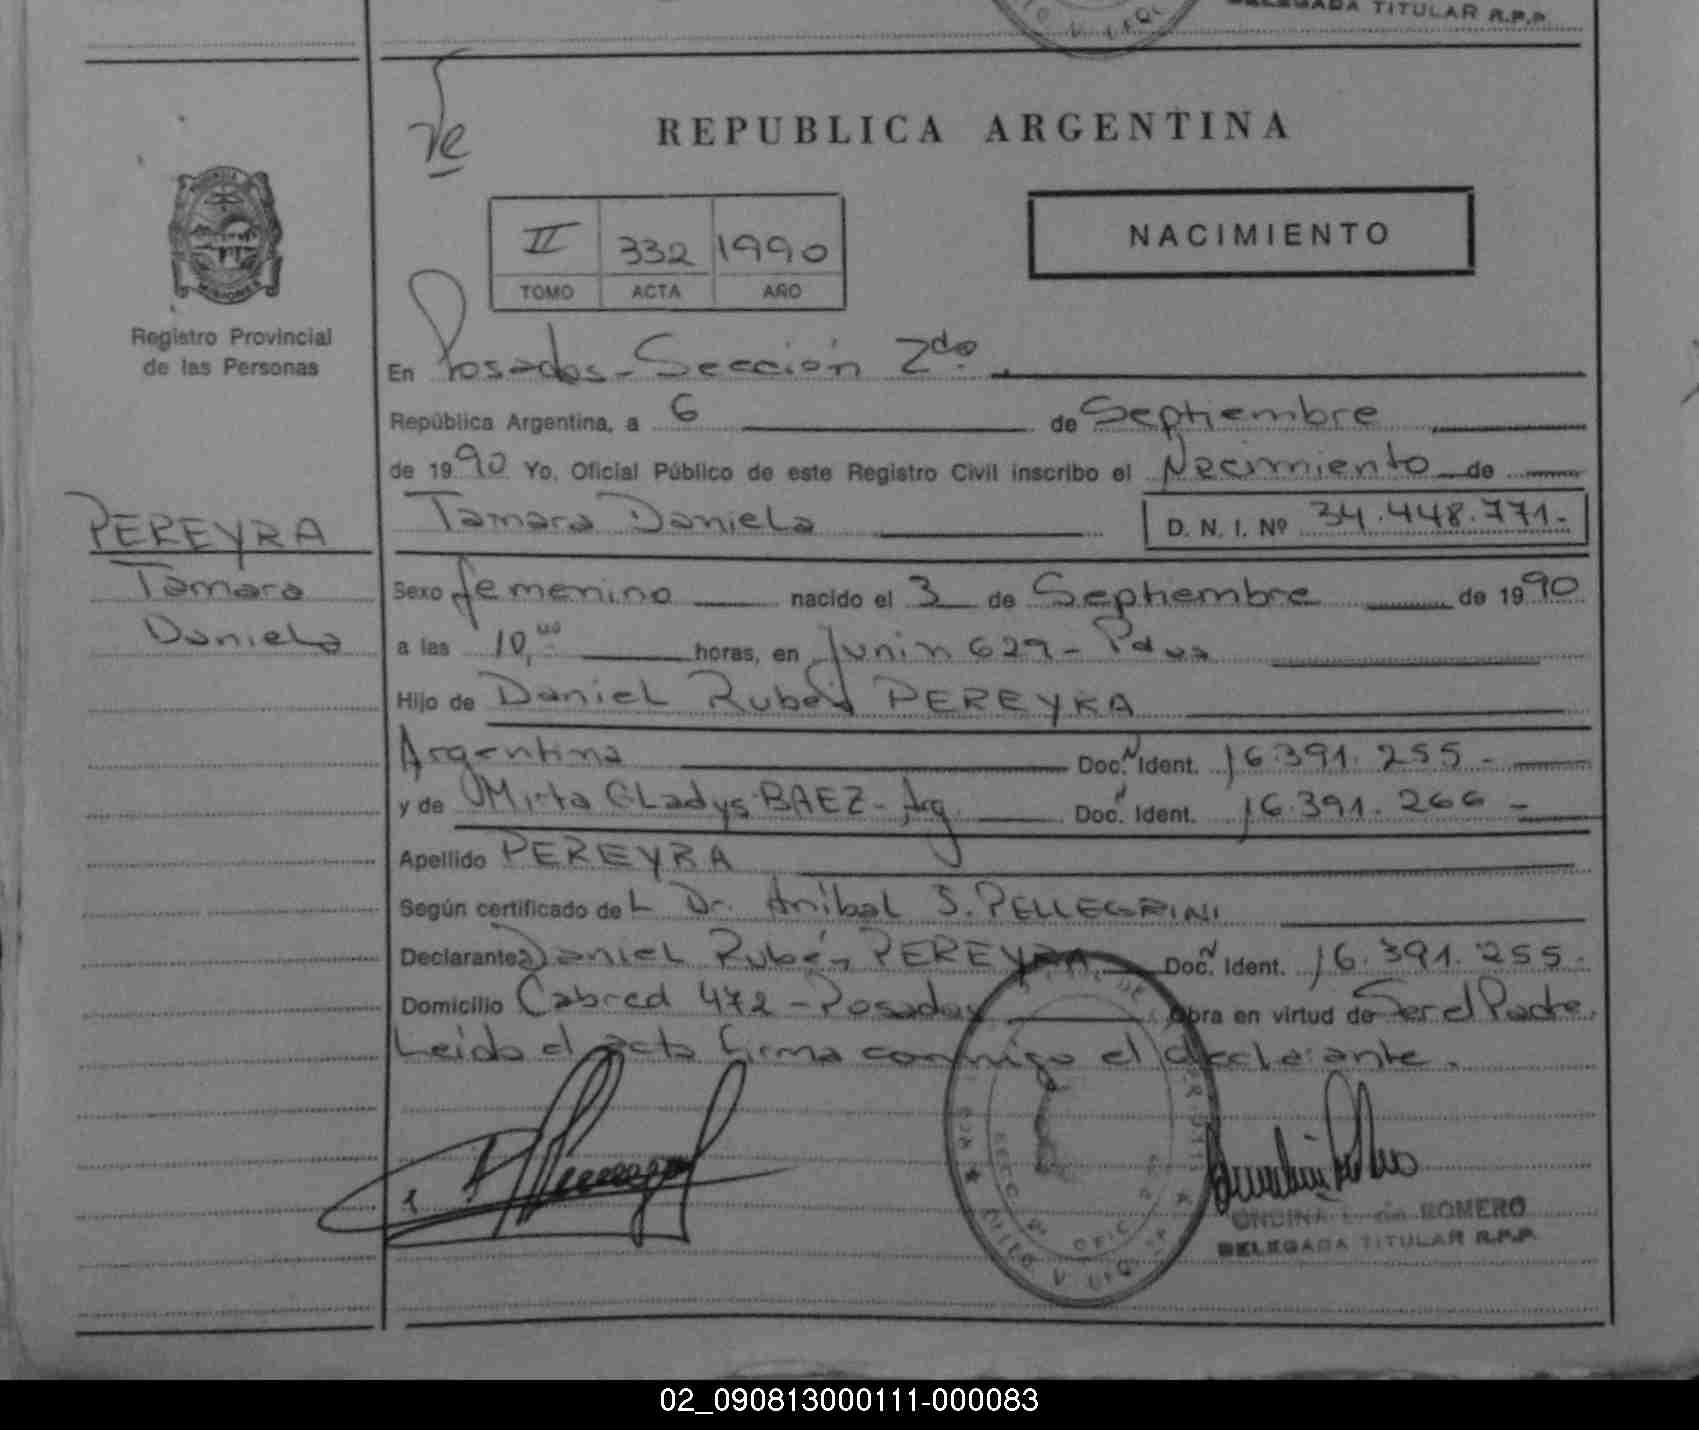 DELEGADA TITULAR R.P.P.
REPUBLICA ARGENTINA
II 332 1990
TOMO ACTA AÑO
NACIMIENTO
MISIONES
Registro Provincial
de las Personas
En Posadas - Sección 2da.
República Argentina, a 6 de Septiembre
de 1990 Yo, Oficial Público de este Registro Civil inscribo el Nacimiento de
Tamara Daniela D. N. I. Nº 34.448.771.-
PEREYRA
Tamara
Daniela
Sexo femenino nacido el 3 de Septiembre de 1990
a las 10, horas, en Junin 629 - Pdas
Hijo de Daniel Rubén PEREYRA
Argentina Doc. N Ident. 16.391.255 -
y de Mirta Gladys BAEZ - Arg. Doc. N Ident. 16.391.266 -
Apellido PEREYRA
Según certificado del Dr. Anibal S. PELLEGRINI
Declarante Daniel Rubén PEREYRA Doc. N Ident. 16.391.255.
Domicilio Cabred 472 - Posadas Obra en virtud de Ser el Padre.
Leida el acta firma conmigo el declarante.
ONDINA L. de ROMERO
DELEGADA TITULAR R.P.P.
02_090813000111-000083